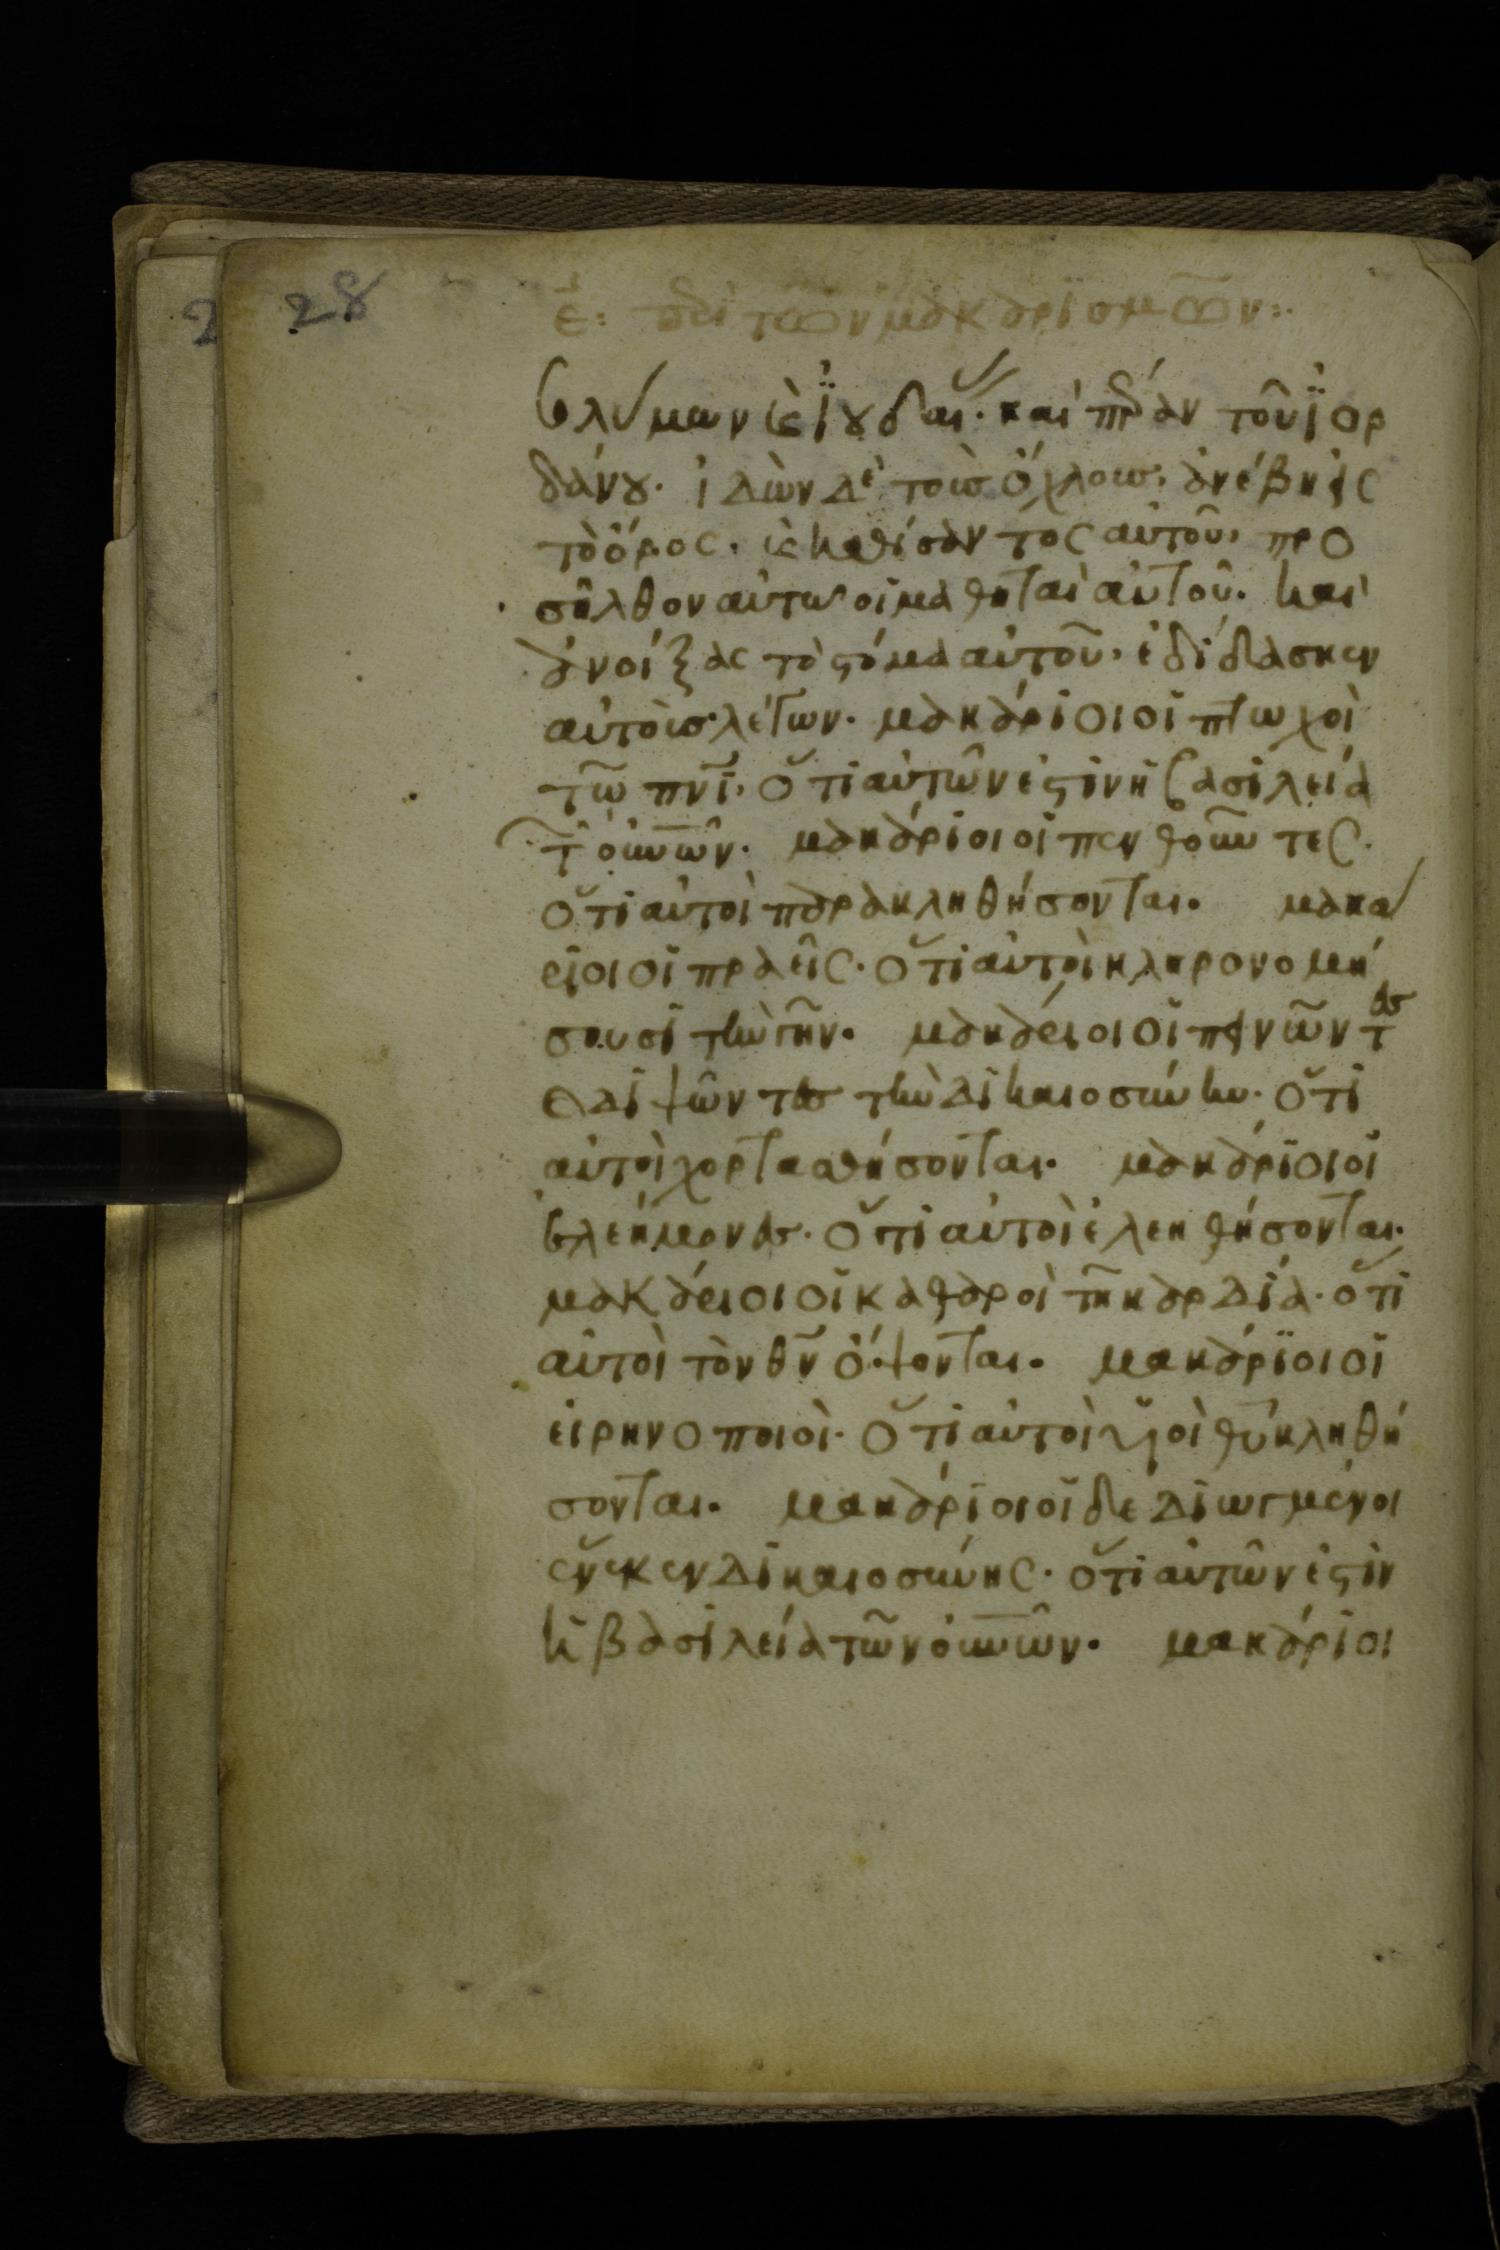 28
ε̄: περὶ τῶν μακαρϊσμῶν:·
σολύμων κ(αὶ) ϊουδαί(ας)· καὶ πέραν τοῦ ϊορ
δάνου· ἰδὼν δὲ τοὺς ὄχλους, ἀνέβη εἰς
τὸ ὄρος. κ(αὶ) καθίσαντος αὐτοῦ, προ
σῆλθον αὐτῶ οἱ μαθηταὶ αὐτοῦ. καὶ
ἀνοίξας τὸ στόμα αὐτοῦ, ἐδίδασκεν
αὐτοὺς λέγων. μακάριοι οἱ πτωχοὶ
τῶ πνϊ, ὅτι αὐτῶν ἐστὶν ἡ βασιλεία
τ(ῶν) οὐνῶν. μακάριοι οἱ πενθοῦντες.
ὅτι αὐτοὶ παρακληθήσονται. μακά
ριοι οἱ πραεῖς. ὅτι αὐτοὶ κληρονομή
σουσι τὴν γῆν. μακάριοι οἱ πεινῶντες
κ(αὶ) διψῶντες τὴν δικαιοσύνην. ὅτι
αὐτοὶ χορτασθήσονται. μακάριοι οἱ
ἐλεήμονες. ὅτι αὐτοὶ ἐλεηθήσονται.
μακάριοι οἱ καθαροὶ τῆ καρδία. ὅτι
αὐτοὶ τὸν θν ὄψονται. μακάρϊοι οἱ
εἰρηνοποιοὶ. ὅτι αὐτοὶ υἱοὶ θυ κληθή
σονται. μακάριοι οἱ δεδιωγμένοι
ἕνεκεν δικαιοσύνης. ὅτι αὐτῶν ἐστὶν
ἡ βασιλεία τῶν οὐνῶν. μακάριοι